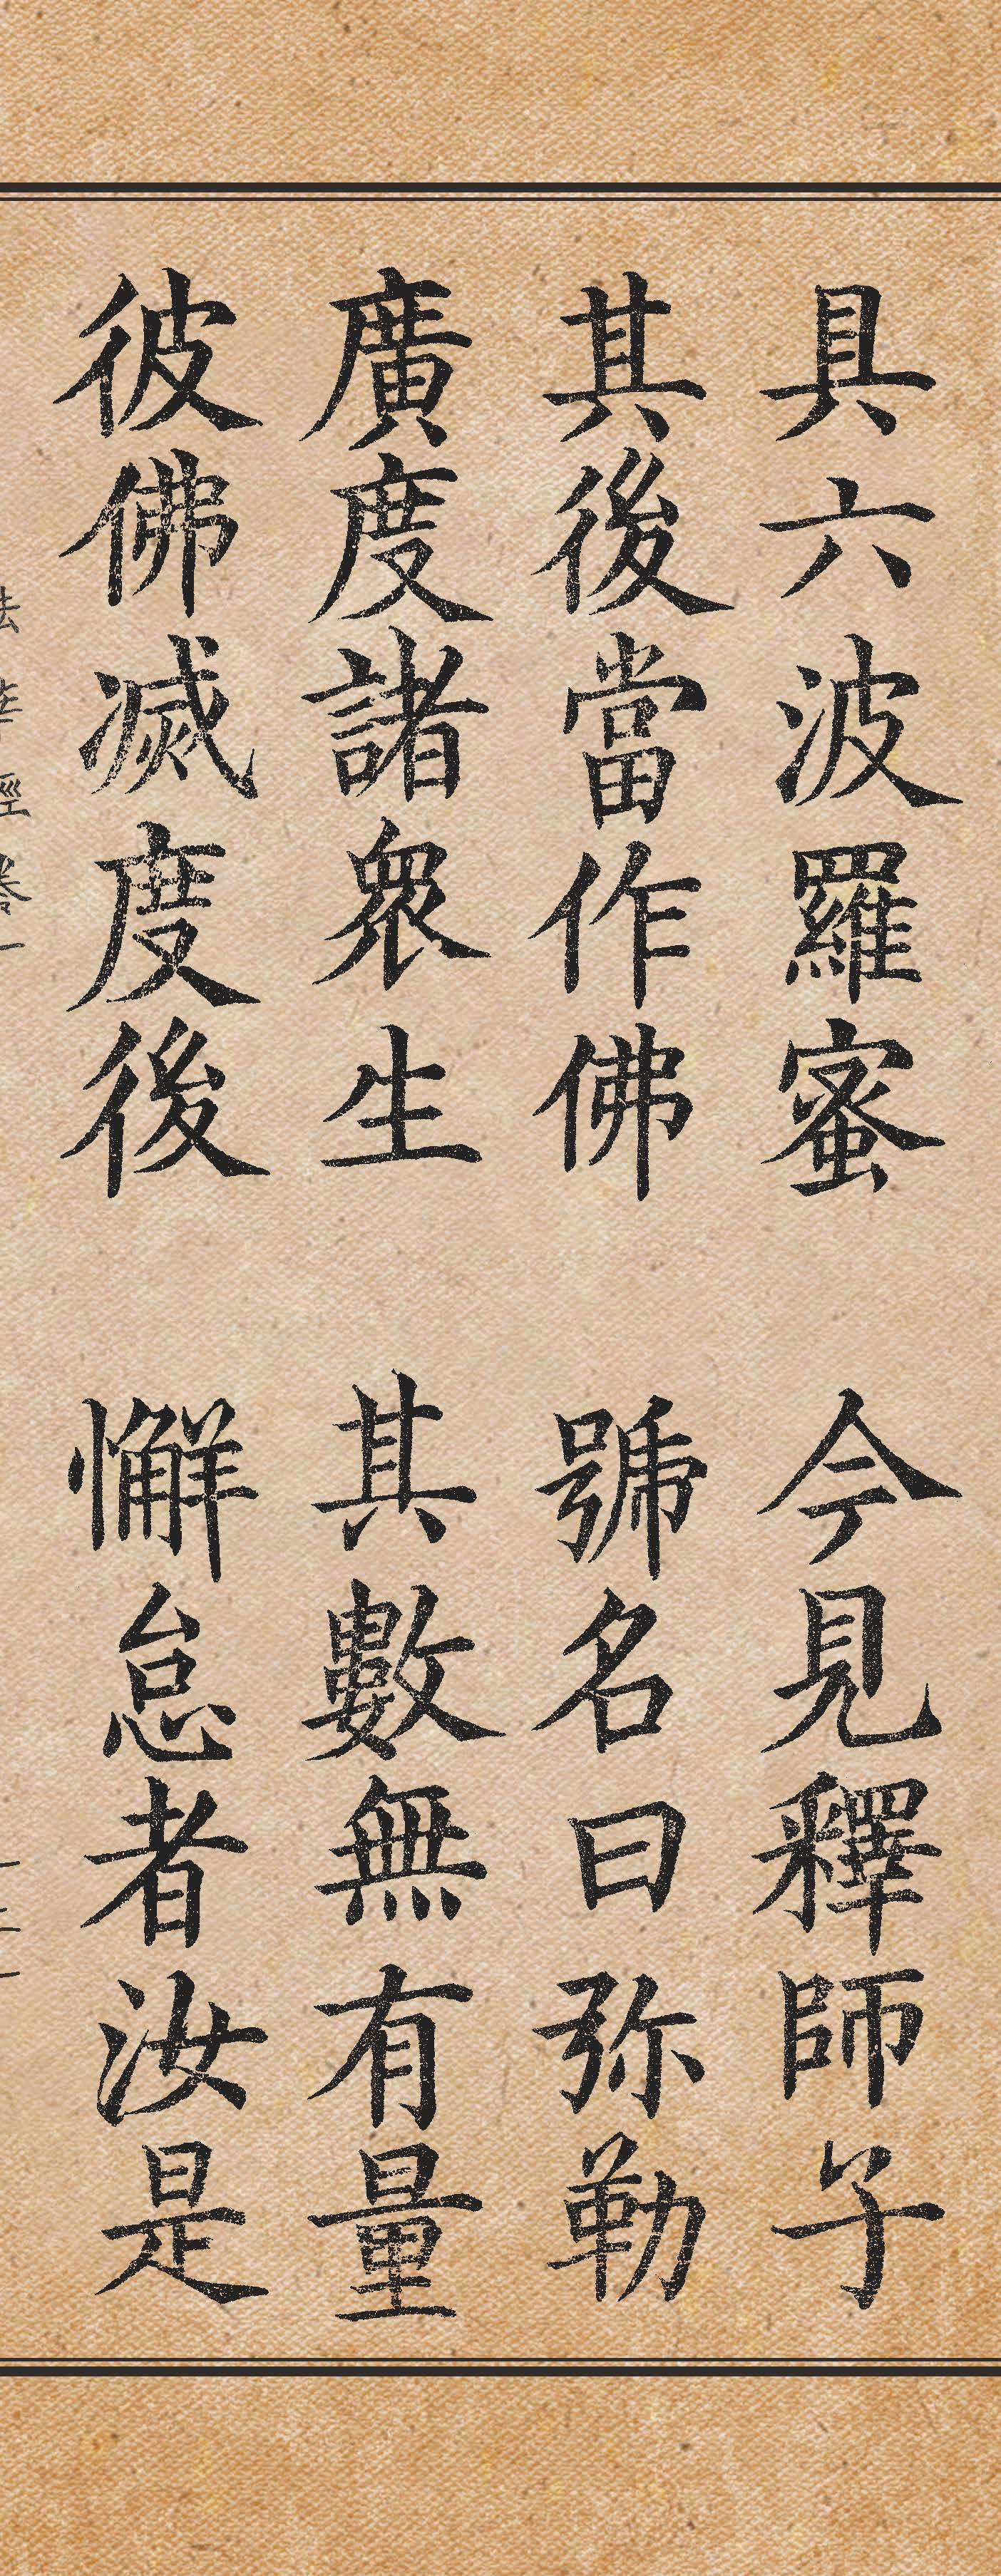 具六波羅蜜　今見釋師子
其後當作佛　號名曰弥勒
廣度諸衆生　其數無有量
彼佛滅度後　懈怠者汝是